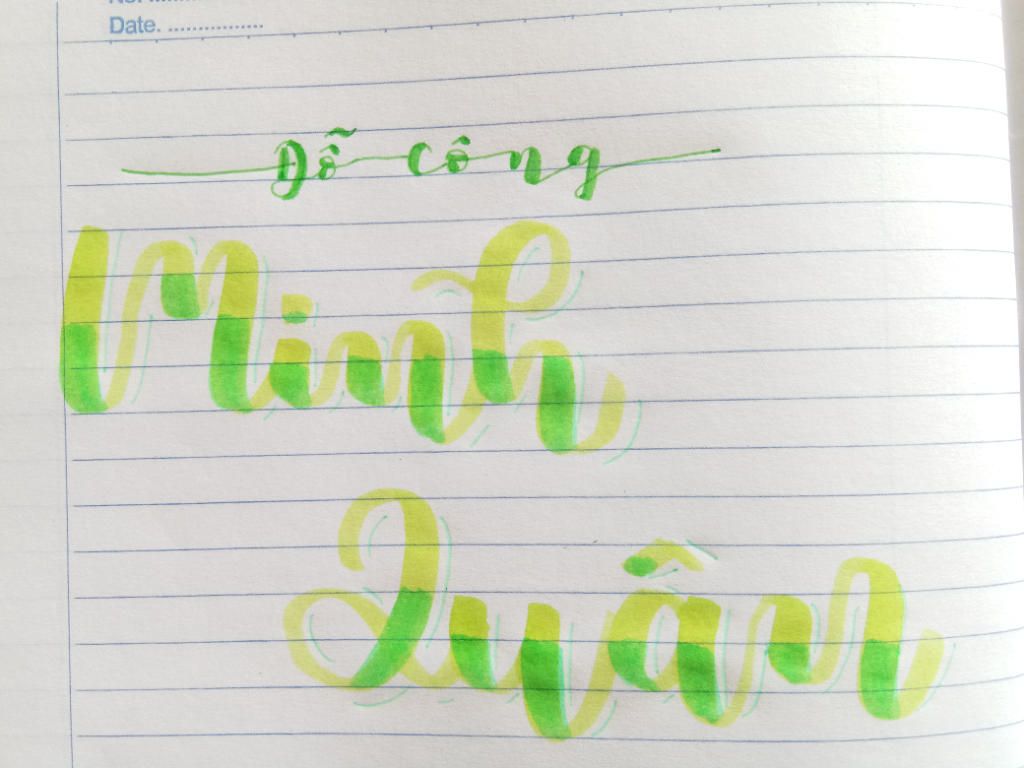 Date. ................
Đỗ Công
Minh
Quân